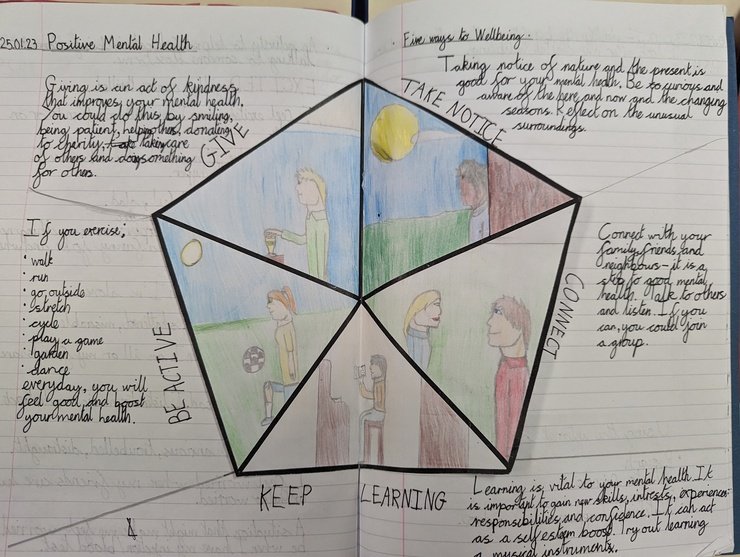 25.01.23 Positive Mental Health
Five ways to Wellbeing.
Giving is an act of kindness
that improves your mental health.
You could do this by smiling,
being patient, helping others, donating
to charity, taking care
of others and doing something
for others.
GIVE
TAKE NOTICE
Taking notice of nature and the present is
good for your mental health. Be so curious and
aware of the here and now and the changing
seasons. Reflect on the unusual
surroundings.
If you exercise;
• walk
• run
• go outside
• stretch
• cycle
• play a game
• garden
• dance
everyday, you will
feel good and boost
your mental health.
BE ACTIVE
CONNECT
Connect with your
family, friends, and
neighbours - it is a
step to good mental
health. Talk to others
and listen. If you
can, you could join
a group.
KEEP LEARNING
Learning is vital to your mental health. It
is important to gain new skills, experiences
responsibilities and confidence. It can act
as a self esteem boost. Try out learning
a musical instruments.